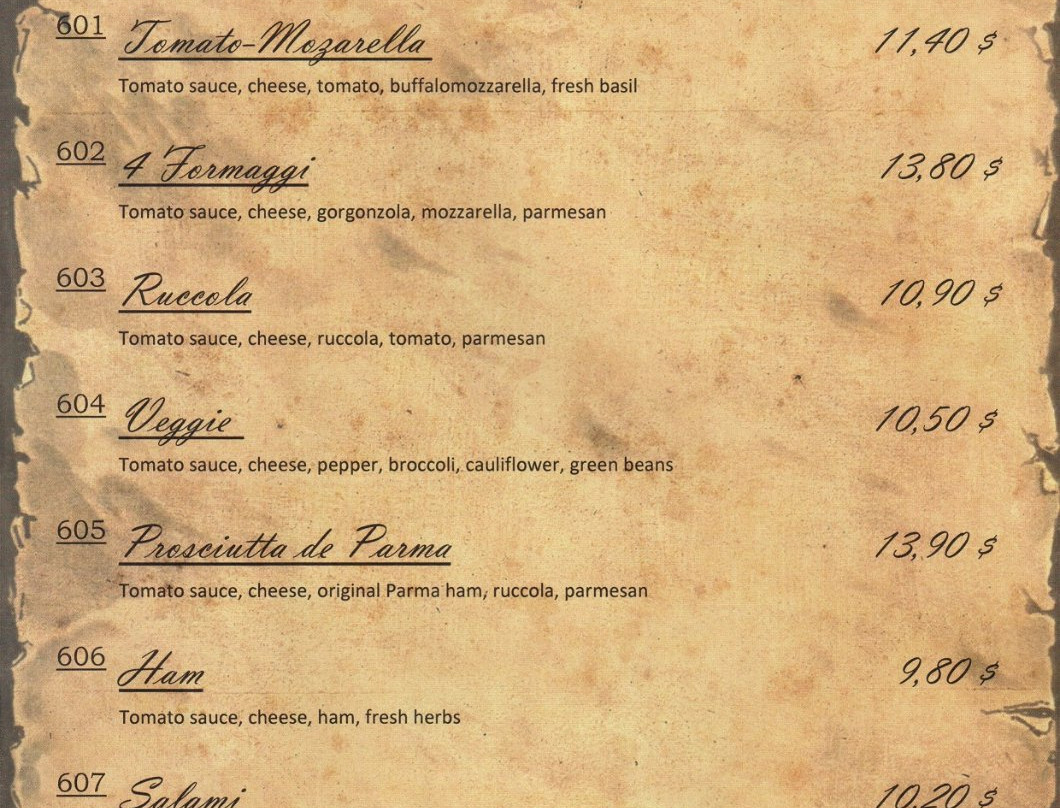 601 Tomato-Mozarella 11,40 $
Tomato sauce, cheese, tomato, buffalomozzarella, fresh basil
602 4 Formaggi 13,80 $
Tomato sauce, cheese, gorgonzola, mozzarella, parmesan
603 Ruccola 10,90 $
Tomato sauce, cheese, ruccola, tomato, parmesan
604 Veggie 10,50 $
Tomato sauce, cheese, pepper, broccoli, cauliflower, green beans
605 Prosciutta de Parma 13,90 $
Tomato sauce, cheese, original Parma ham, ruccola, parmesan
606 Ham 9,80 $
Tomato sauce, cheese, ham, fresh herbs
607 Salami 10,20 $